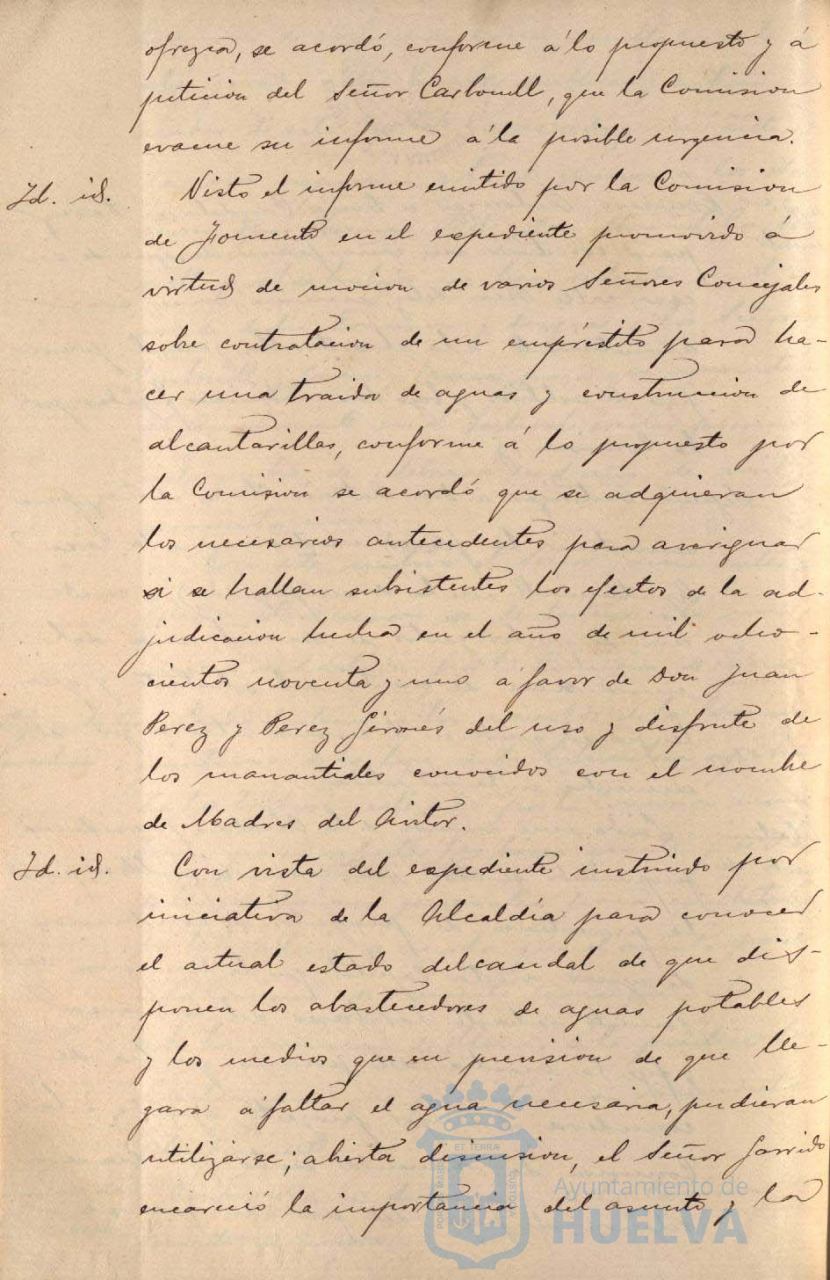 ofrezca, se acordó, conforme á lo propuesto y á
peticion del Señor Carbonell, que la Comision
evacue su informe á la posible urgencia.
Id. id.
Visto el informe emitido por la Comision
de Fomento en el expediente promovido á
virtud de mocion de varios Señores Concejales
sobre contratacion de un empréstito para ha-
cer una traida de aguas y construccion de
alcantarillas, conforme á lo propuesto por
la Comision se acordó que se adquieran
los necesarios antecedentes para averiguar
si se hallan subsistentes los efectos de la ad-
judicacion hecha en el año de mil ocho-
cientos noventa y uno á favor de Don Juan
Perez y Perez Gironés del uso y disfrute de
los manantiales conocidos con el nombre
de Madres del Avitor.
Id. id.
Con vista del expediente instruido por
iniciativa de la Alcaldía para conocer
el actual estado del caudal de que dis-
ponen los abastecedores de aguas potables
y los medios que en prevision de que lle-
gara á faltar el agua necesaria, pudieran
utilizarse; abierta discusion, el Señor Garrido
encareció la importancia del asunto y la
Ayuntamiento de
HUELVA